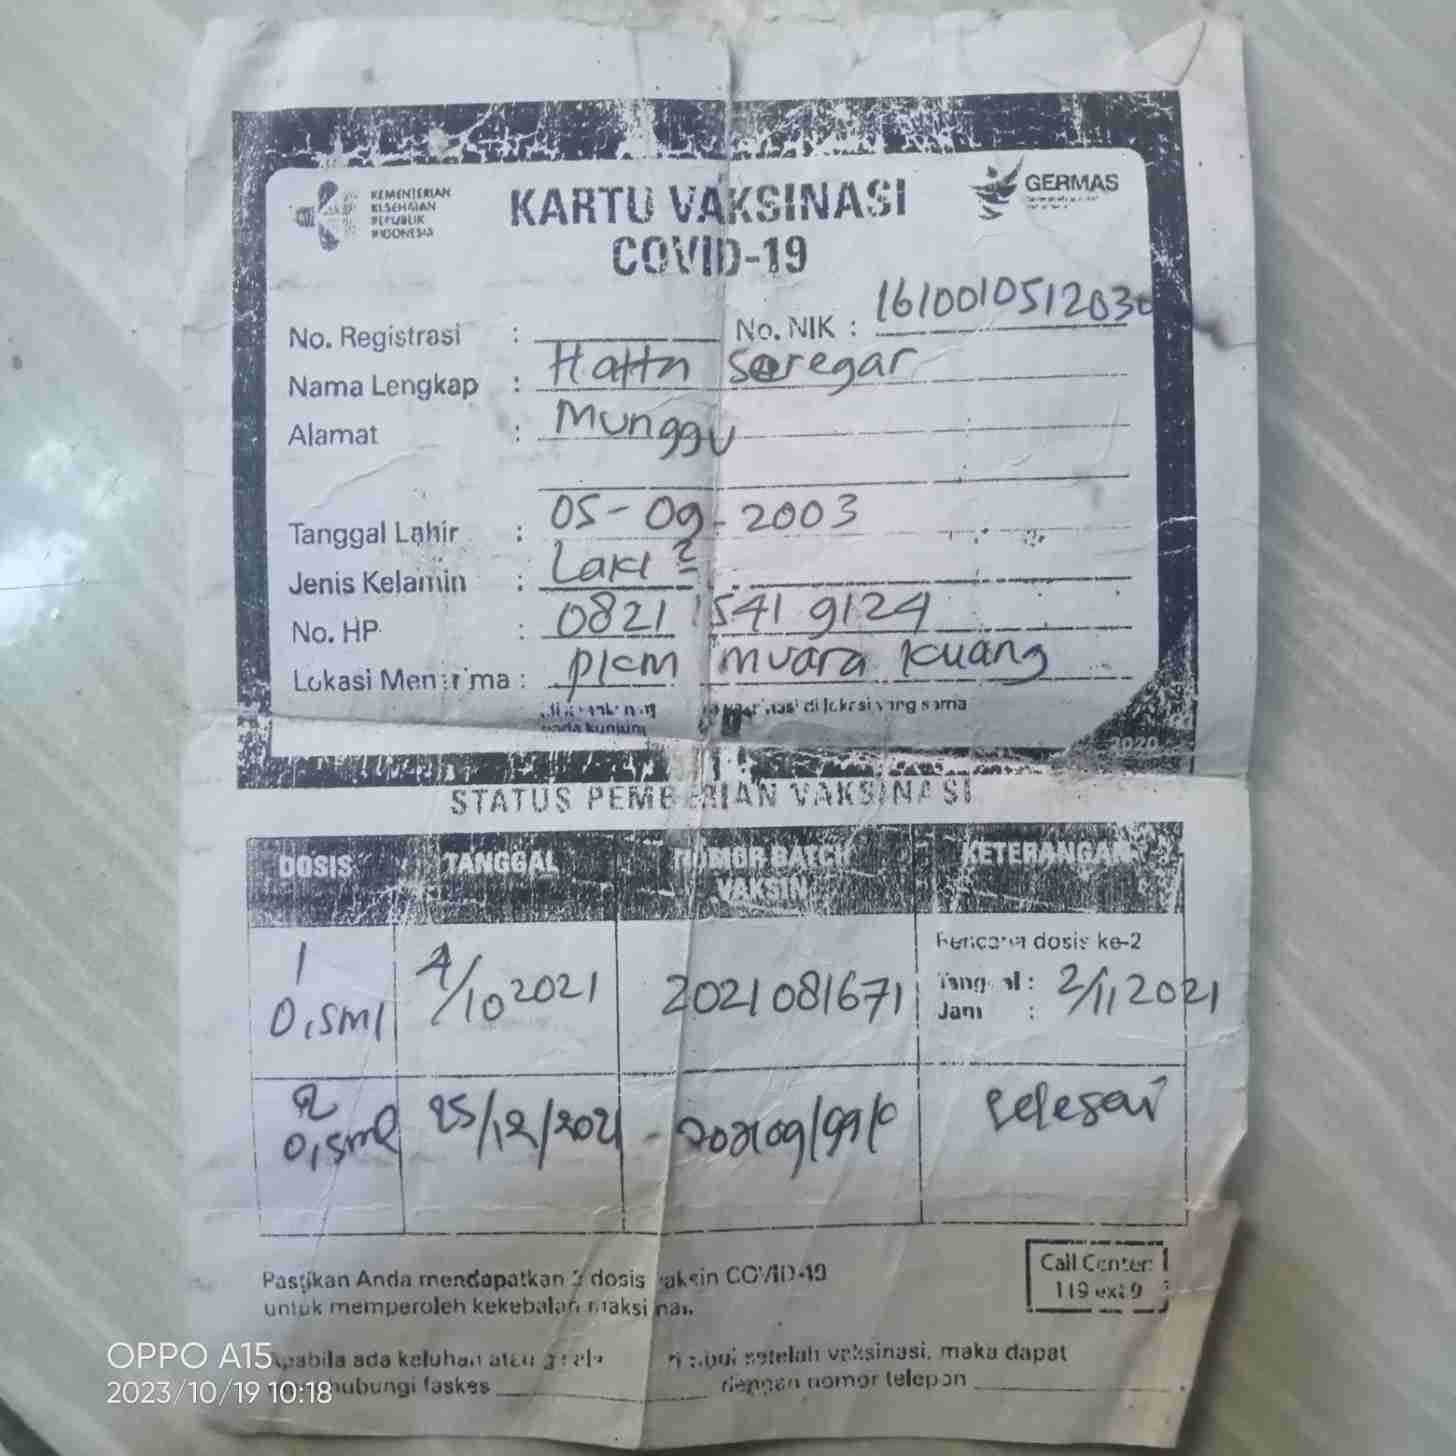 KEMENTERIAN
KESEHATAN
REPUBLIK
INDONESIA
KARTU VAKSINASI
COVID-19
GERMAS
No. Registrasi :
No. NIK :
Nama Lengkap : Soregar
Alamat : Munggu
Tanggal Lahir : 05-09-2003
Jenis Kelamin : Laki 2
No. HP : 0821 1541 9124
Lokasi Menerima : pkm muara kuang
di lokasi yang sama
pada kunjung
2020
STATUS PEMBERIAN VAKSINASI
DOSIS TANGGAL NOMOR BATCH VAKSIN KETERANGAN
Rencana dosis ke-2
1 4/10 2021 2021081671 Tanggal : 2/11, 2021
0,5ml Jam :
2 25/12/2021 selesai
0,5ml
Pastikan Anda mendapatkan 2 dosis vaksin COVID-19
untuk memperoleh kekebalan maksimal.
Call Center:
119 ext 9
Apabila ada keluhan atau gejala setelah vaksinasi, maka dapat
menghubungi faskes dengan nomor telepon
OPPO A15
2023/10/19 10:18